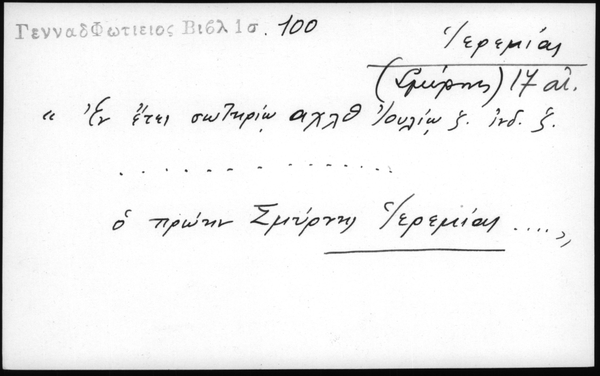 ΓενναδΦωτιειος Βιβλ 1σ. 100
Ἱερεμίας
(Σμύρνης) 17 αἰ.
« Ἐν ἔτει σωτηρίῳ αχλθ Ἰουλίῳ ζ. ἰνδ. ζ.
. . . . . . . . . . . . .
ὁ πρώην Σμύρνης Ἱερεμίας .... »